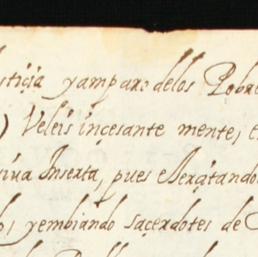 sticia yamparo delos Pobre
) Veleis incesante mente, e
siua Inserta, pues exerçitando
os, yembiando sacerdotes de